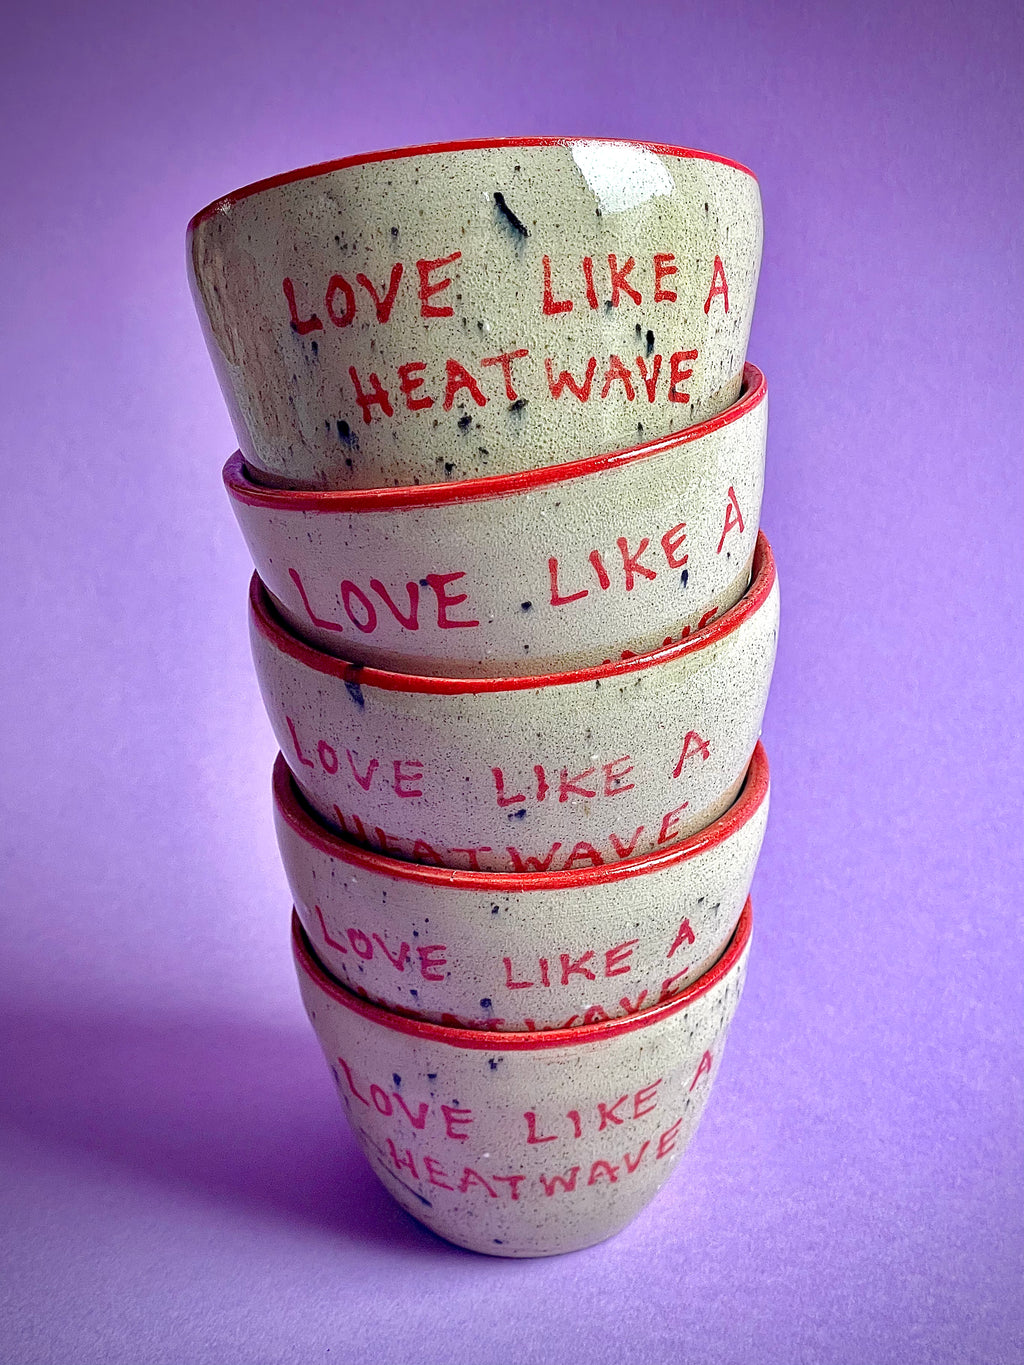 LOVE LIKE A
HEATWAVE
LOVE LIKE A
LOVE LIKE A
HEATWAVE
LOVE LIKE A
HEATWAVE
LOVE LIKE A
HEATWAVE